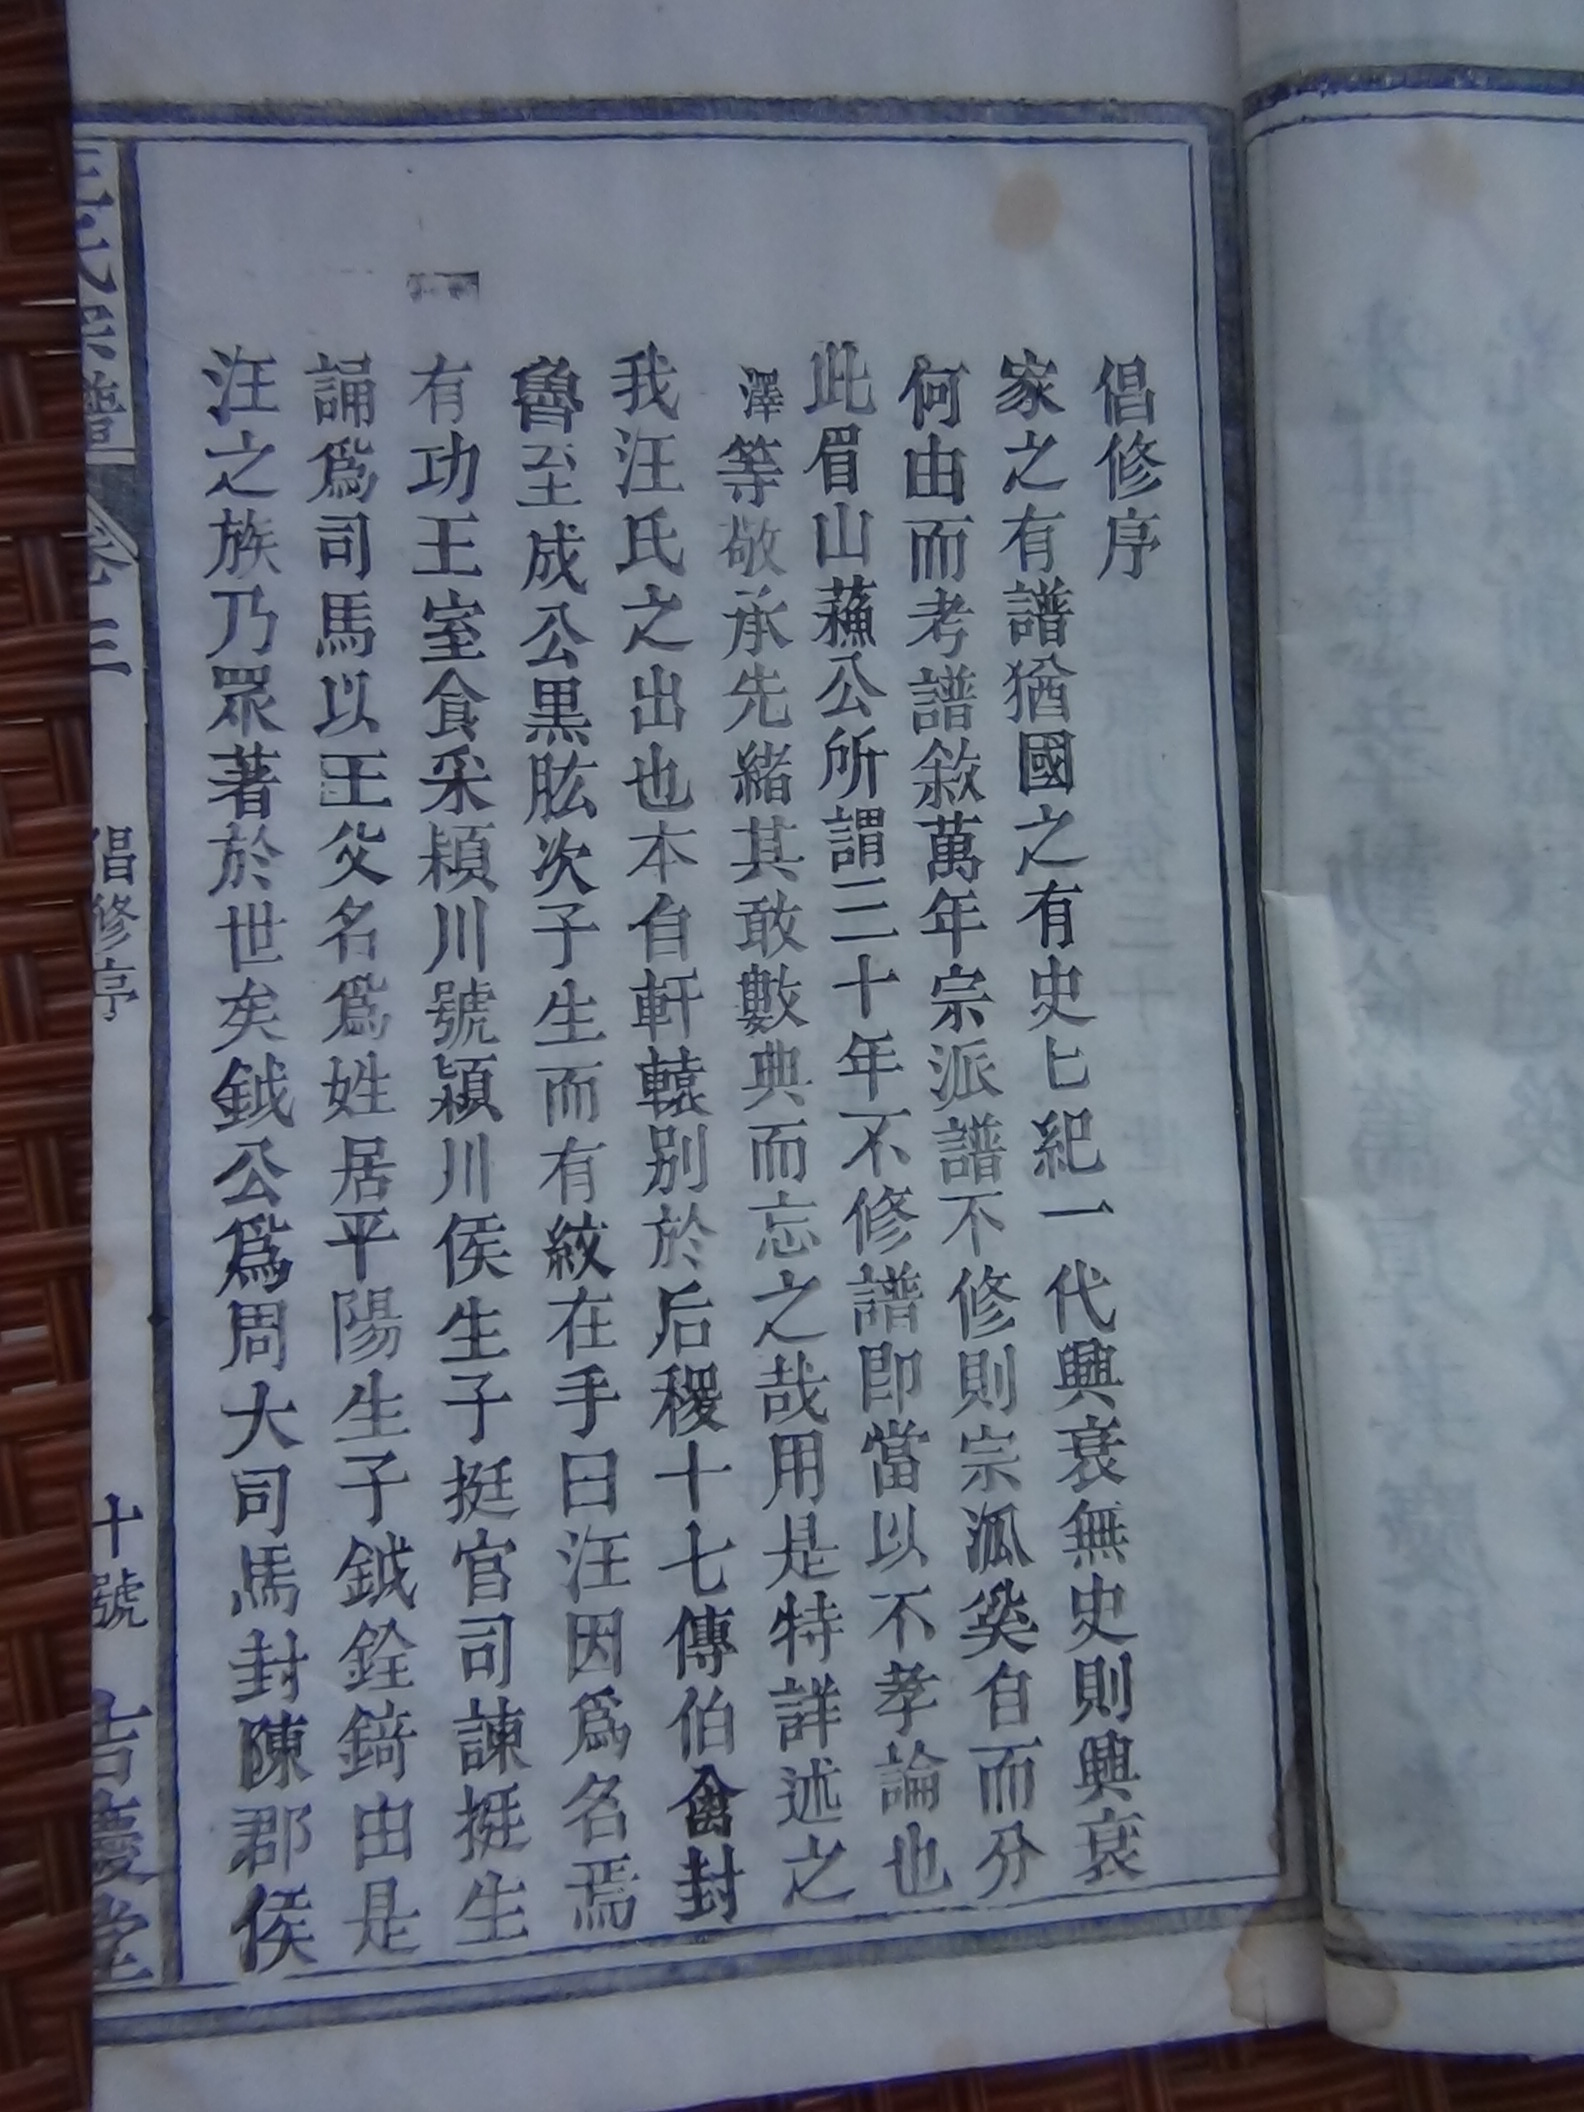 倡修序
家之有譜猶國之有史匕紀一代興衰無史則興衰
何由而考譜敘萬年宗派譜不修則宗派奚自而分
此眉山蘓公所謂三十年不修譜即當以不孝論也
澤等敬承先緒其敢數典而忘之哉用是特詳述之
我汪氏之出也本自軒轅別於后稷十七傳伯禽封
魯至成公黑肱次子生而有紋在手曰汪因爲名焉
有功王室食采頴川號潁川侯生子挺官司諫挺生
誦爲司馬以王父名爲姓居平陽生子鉞銓錡由是
汪之族乃眾著於世矣鉞公爲周大司馬封陳郡侯
汪氏宗譜
卷三
倡修序
十號
吉慶堂